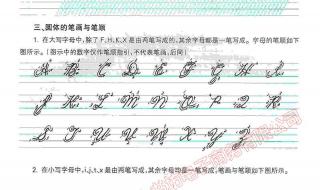 三、圆体的笔画与笔顺
1. 在大写字母中,除了F,H,K,X是由两笔写成的,其余字母都是一笔写成。字母的笔顺如下
图所示。(图示中的数字仅作笔顺指引,不代表笔画,后同)
A B C D E F G H I
J K L M N O P Q R
S T U V W X Y Z
2. 在小写字母中,i,j,t,x是由两笔写成,其余字母均是一笔写成,笔画与笔顺如下图所示。